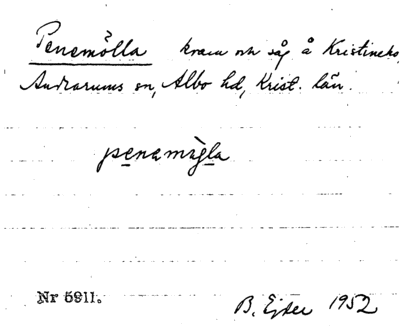 Penamölla kvarn och såg å Kristineho
Andrarums sn, Albo hd, Krist. län.
penamögla
Nr 5911.
B. Ejder 1952